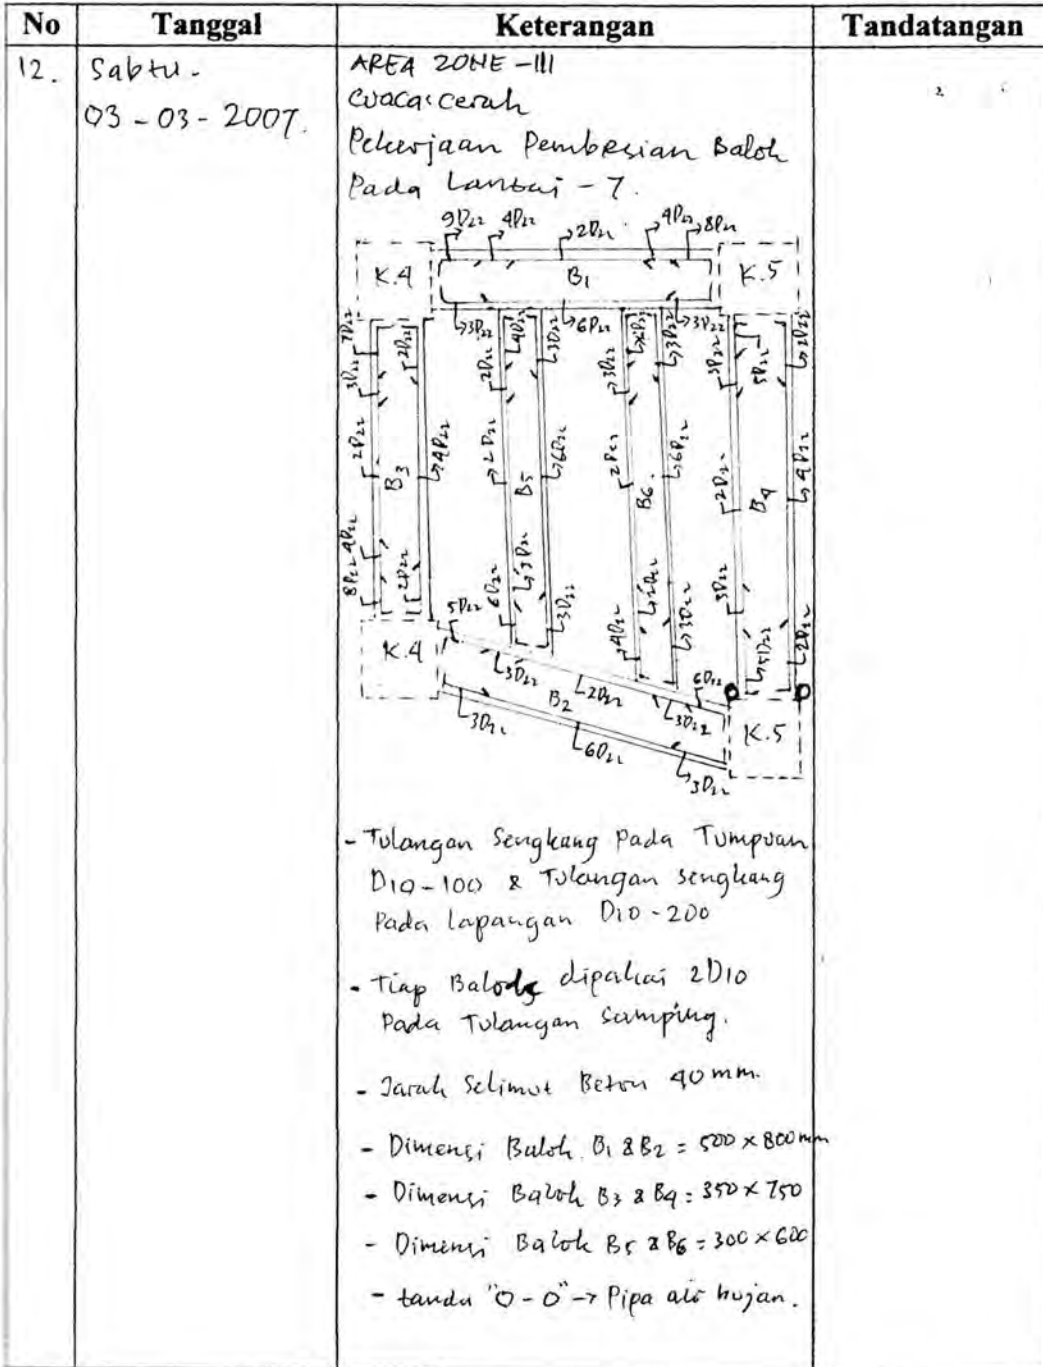 No Tanggal Keterangan Tandatangan
12. Sabtu. AREA ZONE-III
03-03-2007. Cuaca: cerah
Pekerjaan Pembesian Balok
Pada Lantai-7.
9D22 4D22 2D22 4D22 8D22
K.4 B1 K.5
3D22 6D22 3D22
7D22 2D22 2D22 4D22 3D22 3D22 3D22 3D22 5D22 2D22
3D22
2D22 B3 4D22 2D22 B5 6D22 2D22 B6. 6D22 2D22 B4 4D22
8D22 4D22 2D22 6D22 3D22 3D22 4D22 2D22 3D22 3D22 5D22 2D22
5D22
K.4 3D22 2D22 6D22
B2 3D22 K.5
3D22 6D22 3D22
- Tulangan Sengkang Pada Tumpuan
D10-100 & Tulangan sengkang
Pada lapangan D10-200
- Tiap Balok dipakai 2D10
Pada Tulangan Samping.
- Jarak Selimut Beton 40 mm.
- Dimensi Balok B1 & B2 = 500 x 800 mm
- Dimensi Balok B3 & B4 = 350 x 750
- Dimensi Balok B5 & B6 = 300 x 600
- tanda "O-O" → Pipa air hujan.